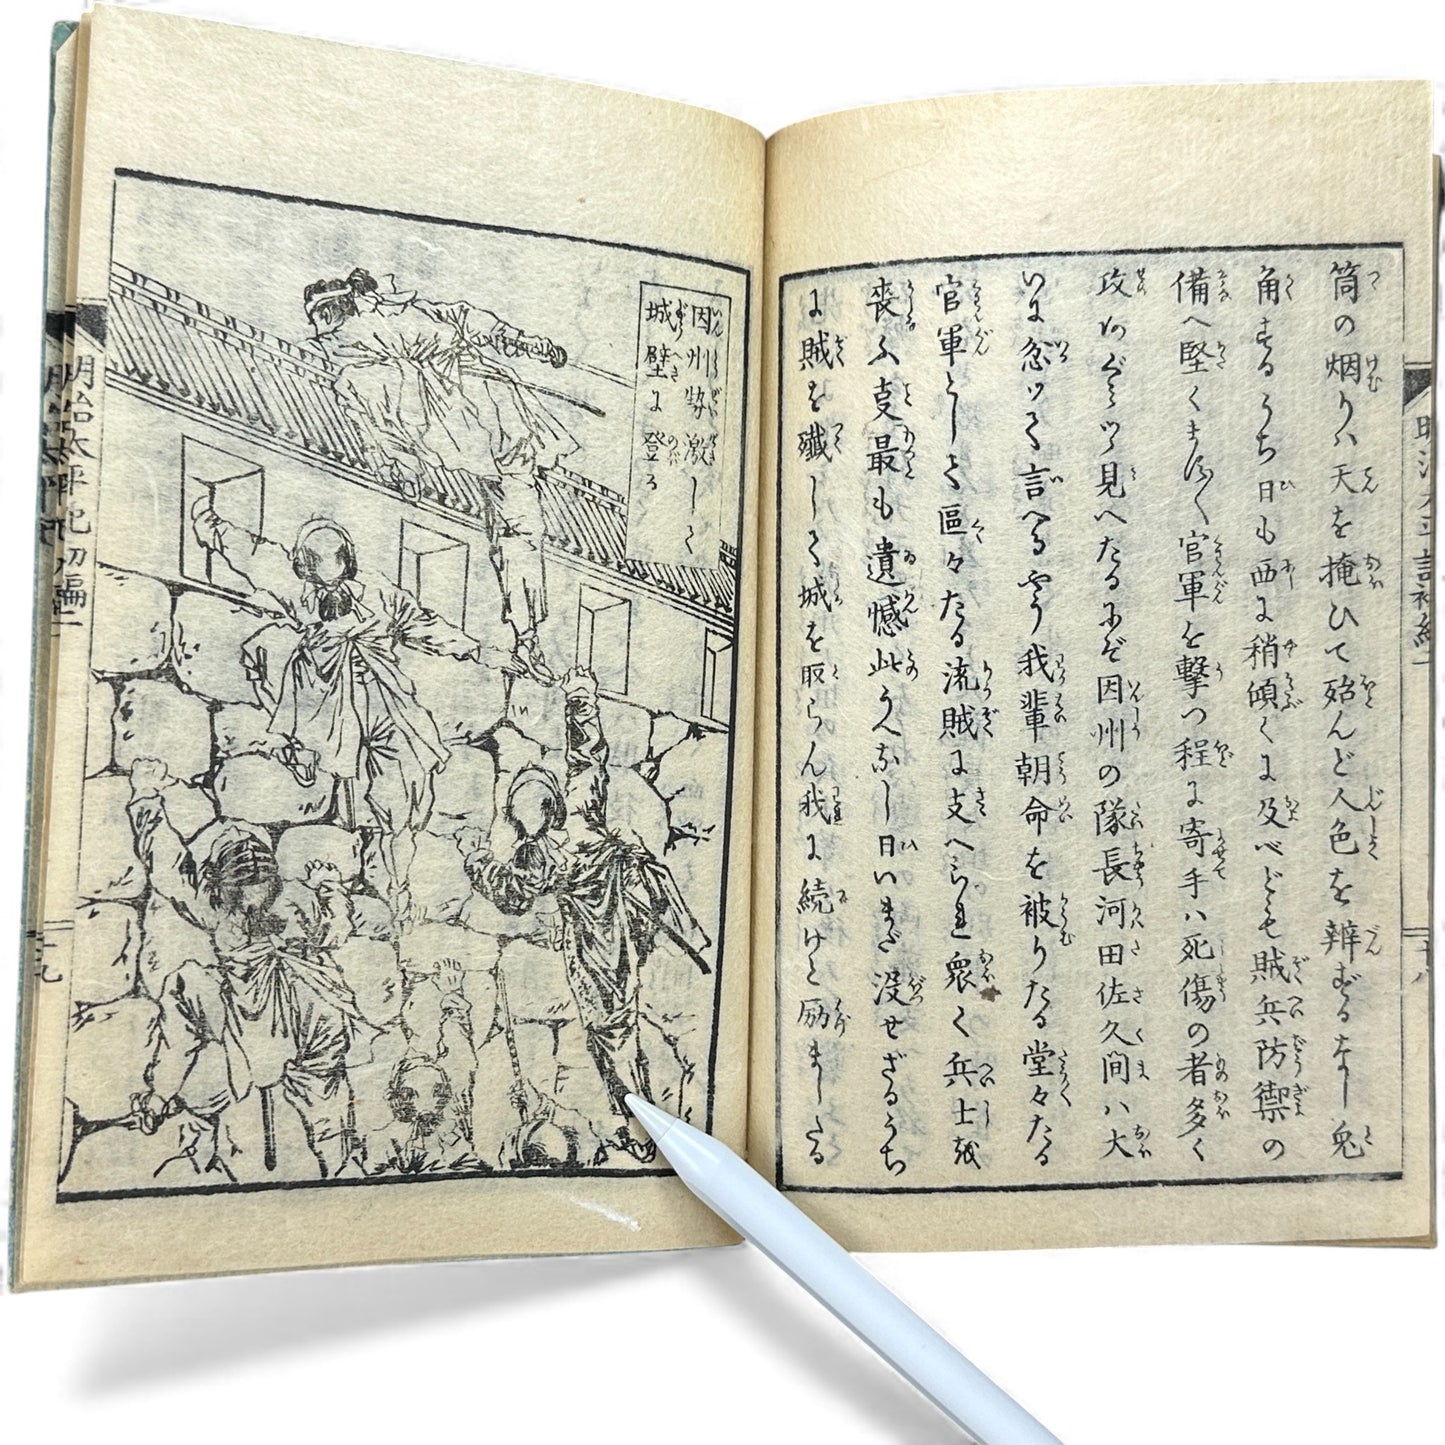 筒の烟りハ天を掩ひて殆んど人色を辨ずるなし兎
角するうち日も西に稍傾くに及べども賊兵防禦の
備へ堅くまた〱官軍を撃つ程に寄手ハ死傷の者多く
攻めぐミつ見へたるにぞ因州の隊長河田佐久間ハ大
いに忿ツて言へるやう我輩朝命を被りたる堂々たる
官軍として區々たる流賊に支へられ衆く兵士を
喪ふ支最も遺憾此うへなし日いまだ没せざるうち
に賊を殲して城を取らん我に続けと励ましたる
因州勢激しく
城壁に登る
明治太平記初編二
十九